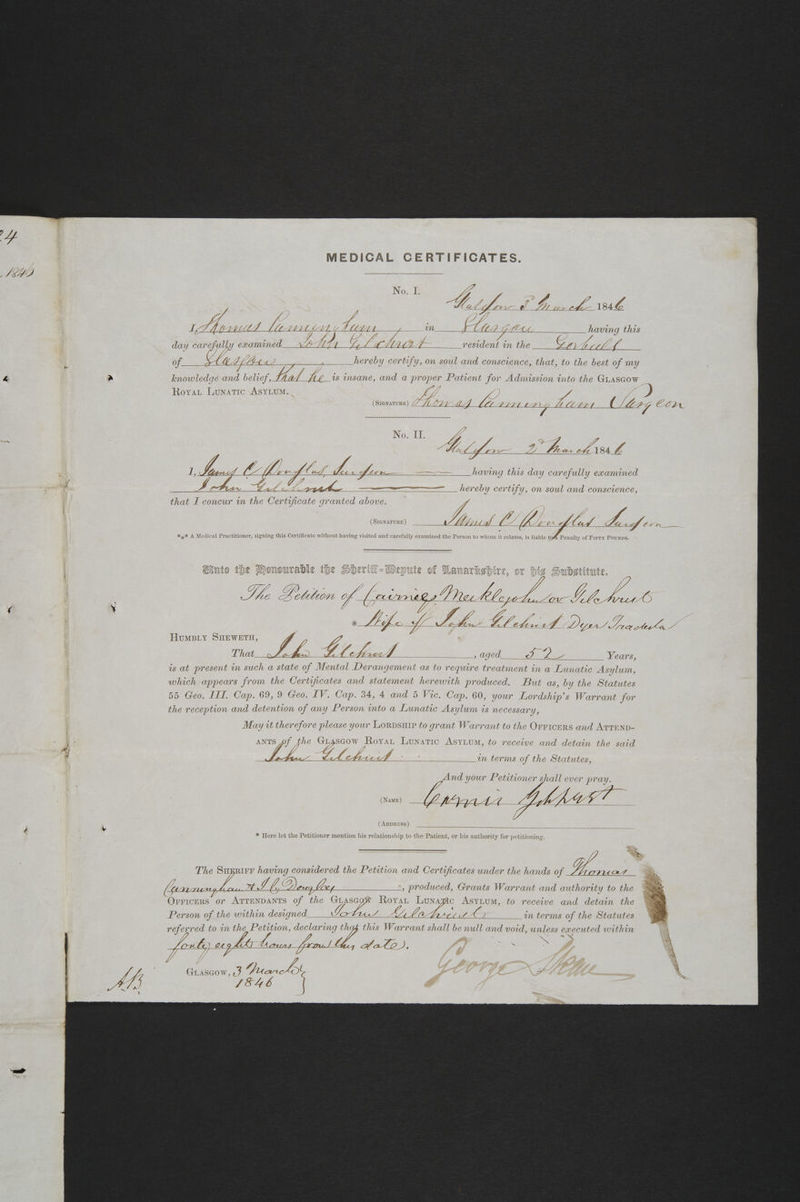 24
1846
MEDICAL CERTIFICATES.
No. I.
Glasgow 3 March 1846
I, Thomas Cunningham in Glasgow having this
day carefully examined John Gilchrist resident in the Gorbals
of Glasgow hereby certify, on soul and conscience, that, to the best of my
knowledge and belief, that he is insane, and a proper Patient for Admission into the GLASGOW
ROYAL LUNATIC ASYLUM.
(SIGNATURE) Thomas Cunningham Surgeon
No. II.
Glasgow 2d March 1846
I, James C Douglas, Surgeon having this day carefully examined
John Gilchrist hereby certify, on soul and conscience,
that I concur in the Certificate granted above.
(SIGNATURE) James C Douglas Surgeon
*** A Medical Practitioner, signing this Certificate without having visited and carefully examined the Person to whom it relates, is liable to a Penalty of FIFTY POUNDS.
Unto the Honourable the Sheriff-Depute of Lanarkshire, or his Substitute.
The Petition of Meiklejohn or Gilchrist
* Wife of John Gilchrist Dyer
HUMBLY SHEWETH,
That John Gilchrist, aged 52 Years,
is at present in such a state of Mental Derangement as to require treatment in a Lunatic Asylum,
which appears from the Certificates and statement herewith produced. But as, by the Statutes
55 Geo. III. Cap. 69, 9 Geo. IV. Cap. 34, 4 and 5 Vic. Cap. 60, your Lordship's Warrant for
the reception and detention of any Person into a Lunatic Asylum is necessary,
May it therefore please your LORDSHIP to grant Warrant to the OFFICERS and ATTEND-
ANTS of the GLASGOW ROYAL LUNATIC ASYLUM, to receive and detain the said
John Gilchrist in terms of the Statutes,
And your Petitioner shall ever pray.
(NAME)
(ADDRESS)
* Here let the Petitioner mention his relationship to the Patient, or his authority for petitioning.
The SHERIFF having considered the Petition and Certificates under the hands of Thomas
Cunningham & J. C. Douglas, produced, Grants Warrant and authority to the
OFFICERS or ATTENDANTS of the GLASGOW ROYAL LUNATIC ASYLUM, to receive and detain the
Person of the within designed John Gilchrist in terms of the Statutes
referred to in the Petition, declaring that this Warrant shall be null and void, unless executed within
forty eight hours from this date.
GLASGOW, 3 March
1846
George Skene
AB